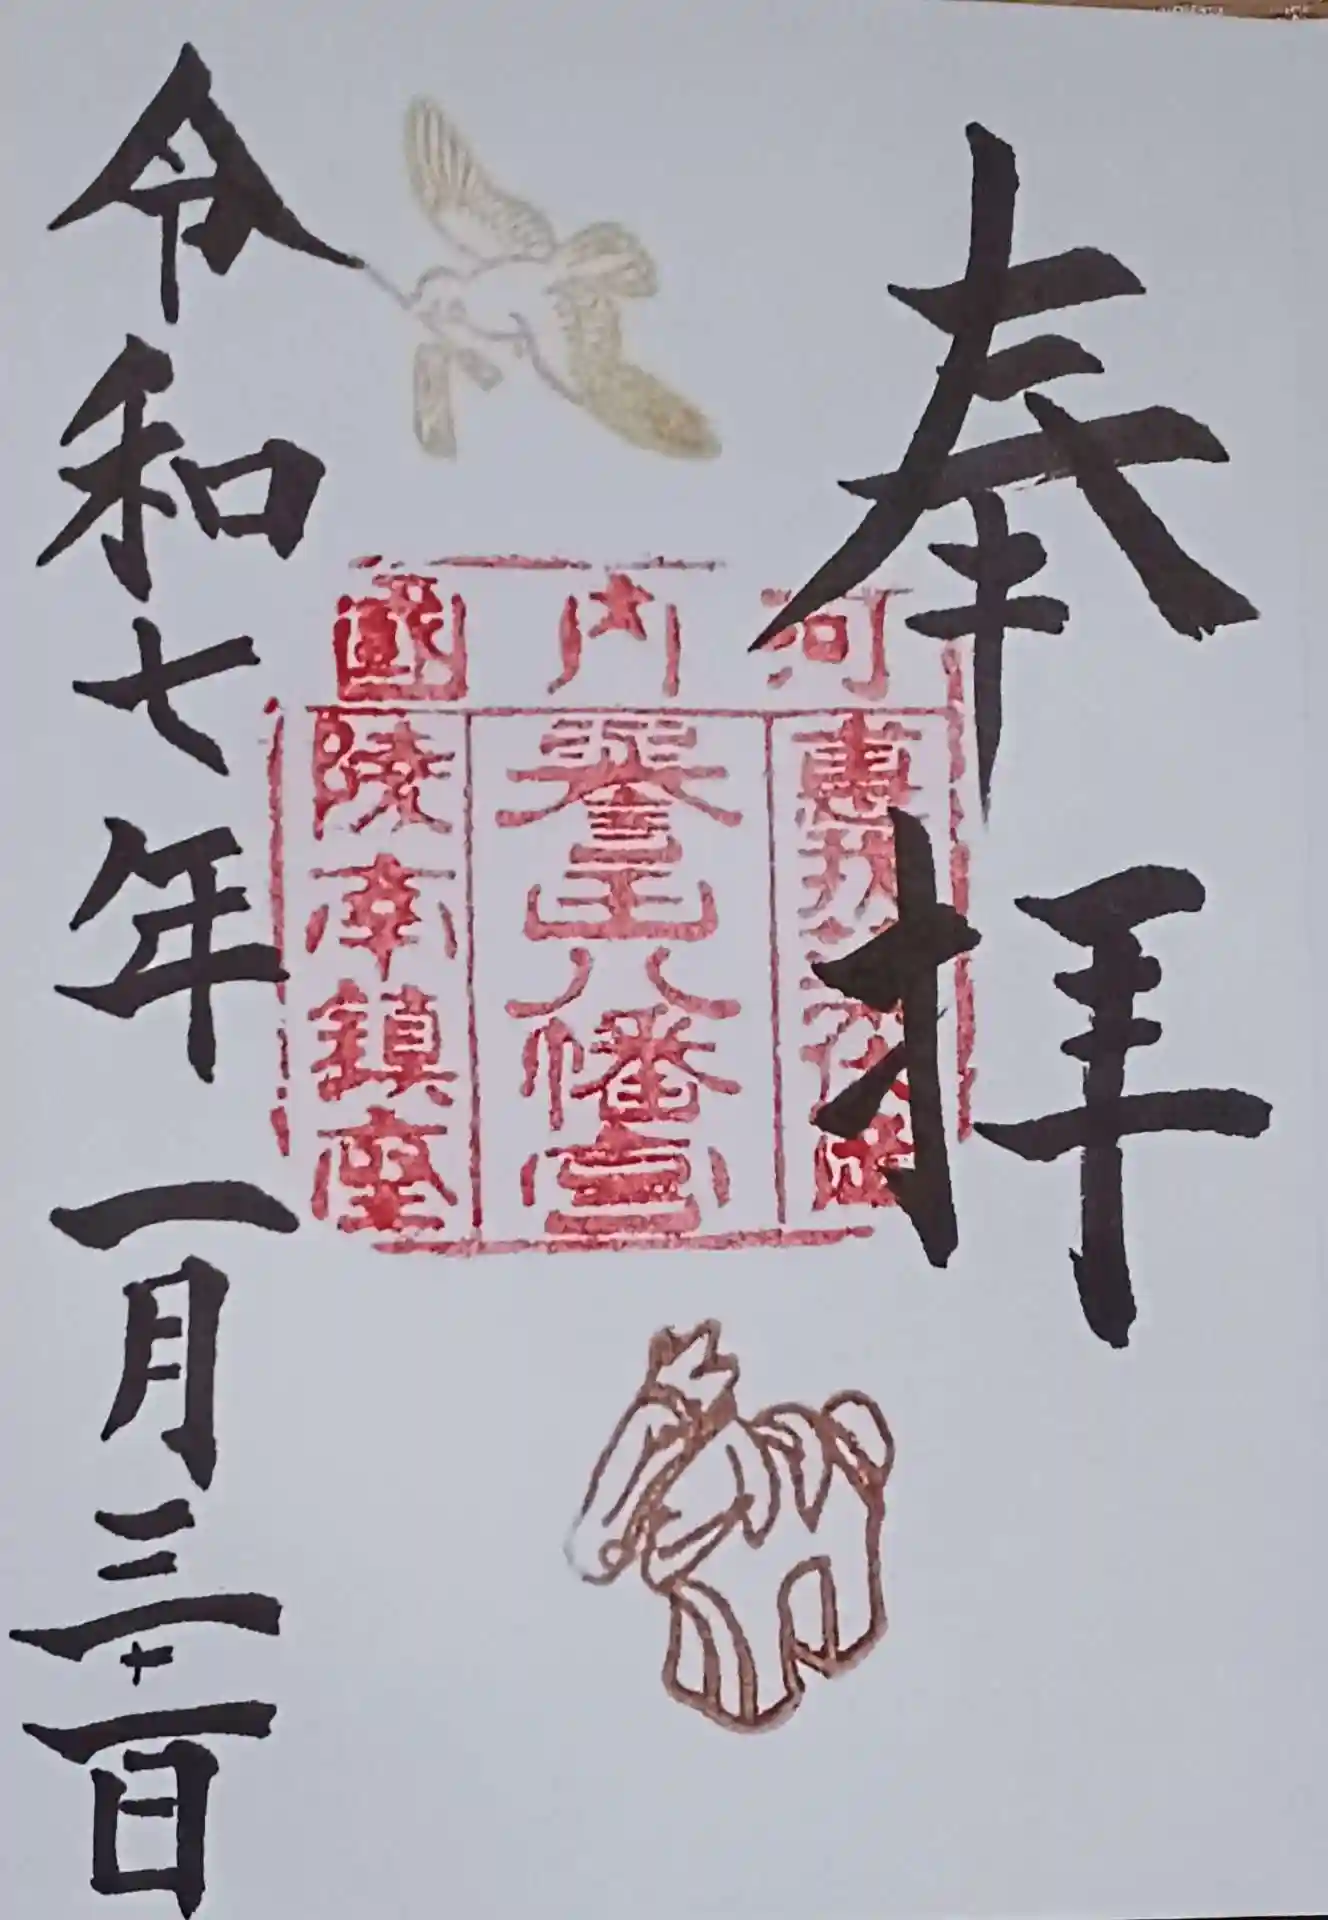 奉拝
河内國
惠我藻伏崗
譽田八幡宮
陵南鎮座
令和七年一月三十一日